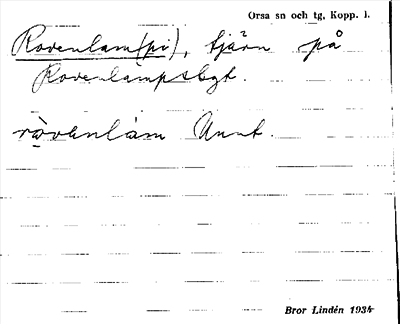 Orsa sn och tg, Kopp. l.
Rovenlam(pi), tjärn på
Rovenlampsbgt.
rovenlam Annt.
Bror Lindén 1934